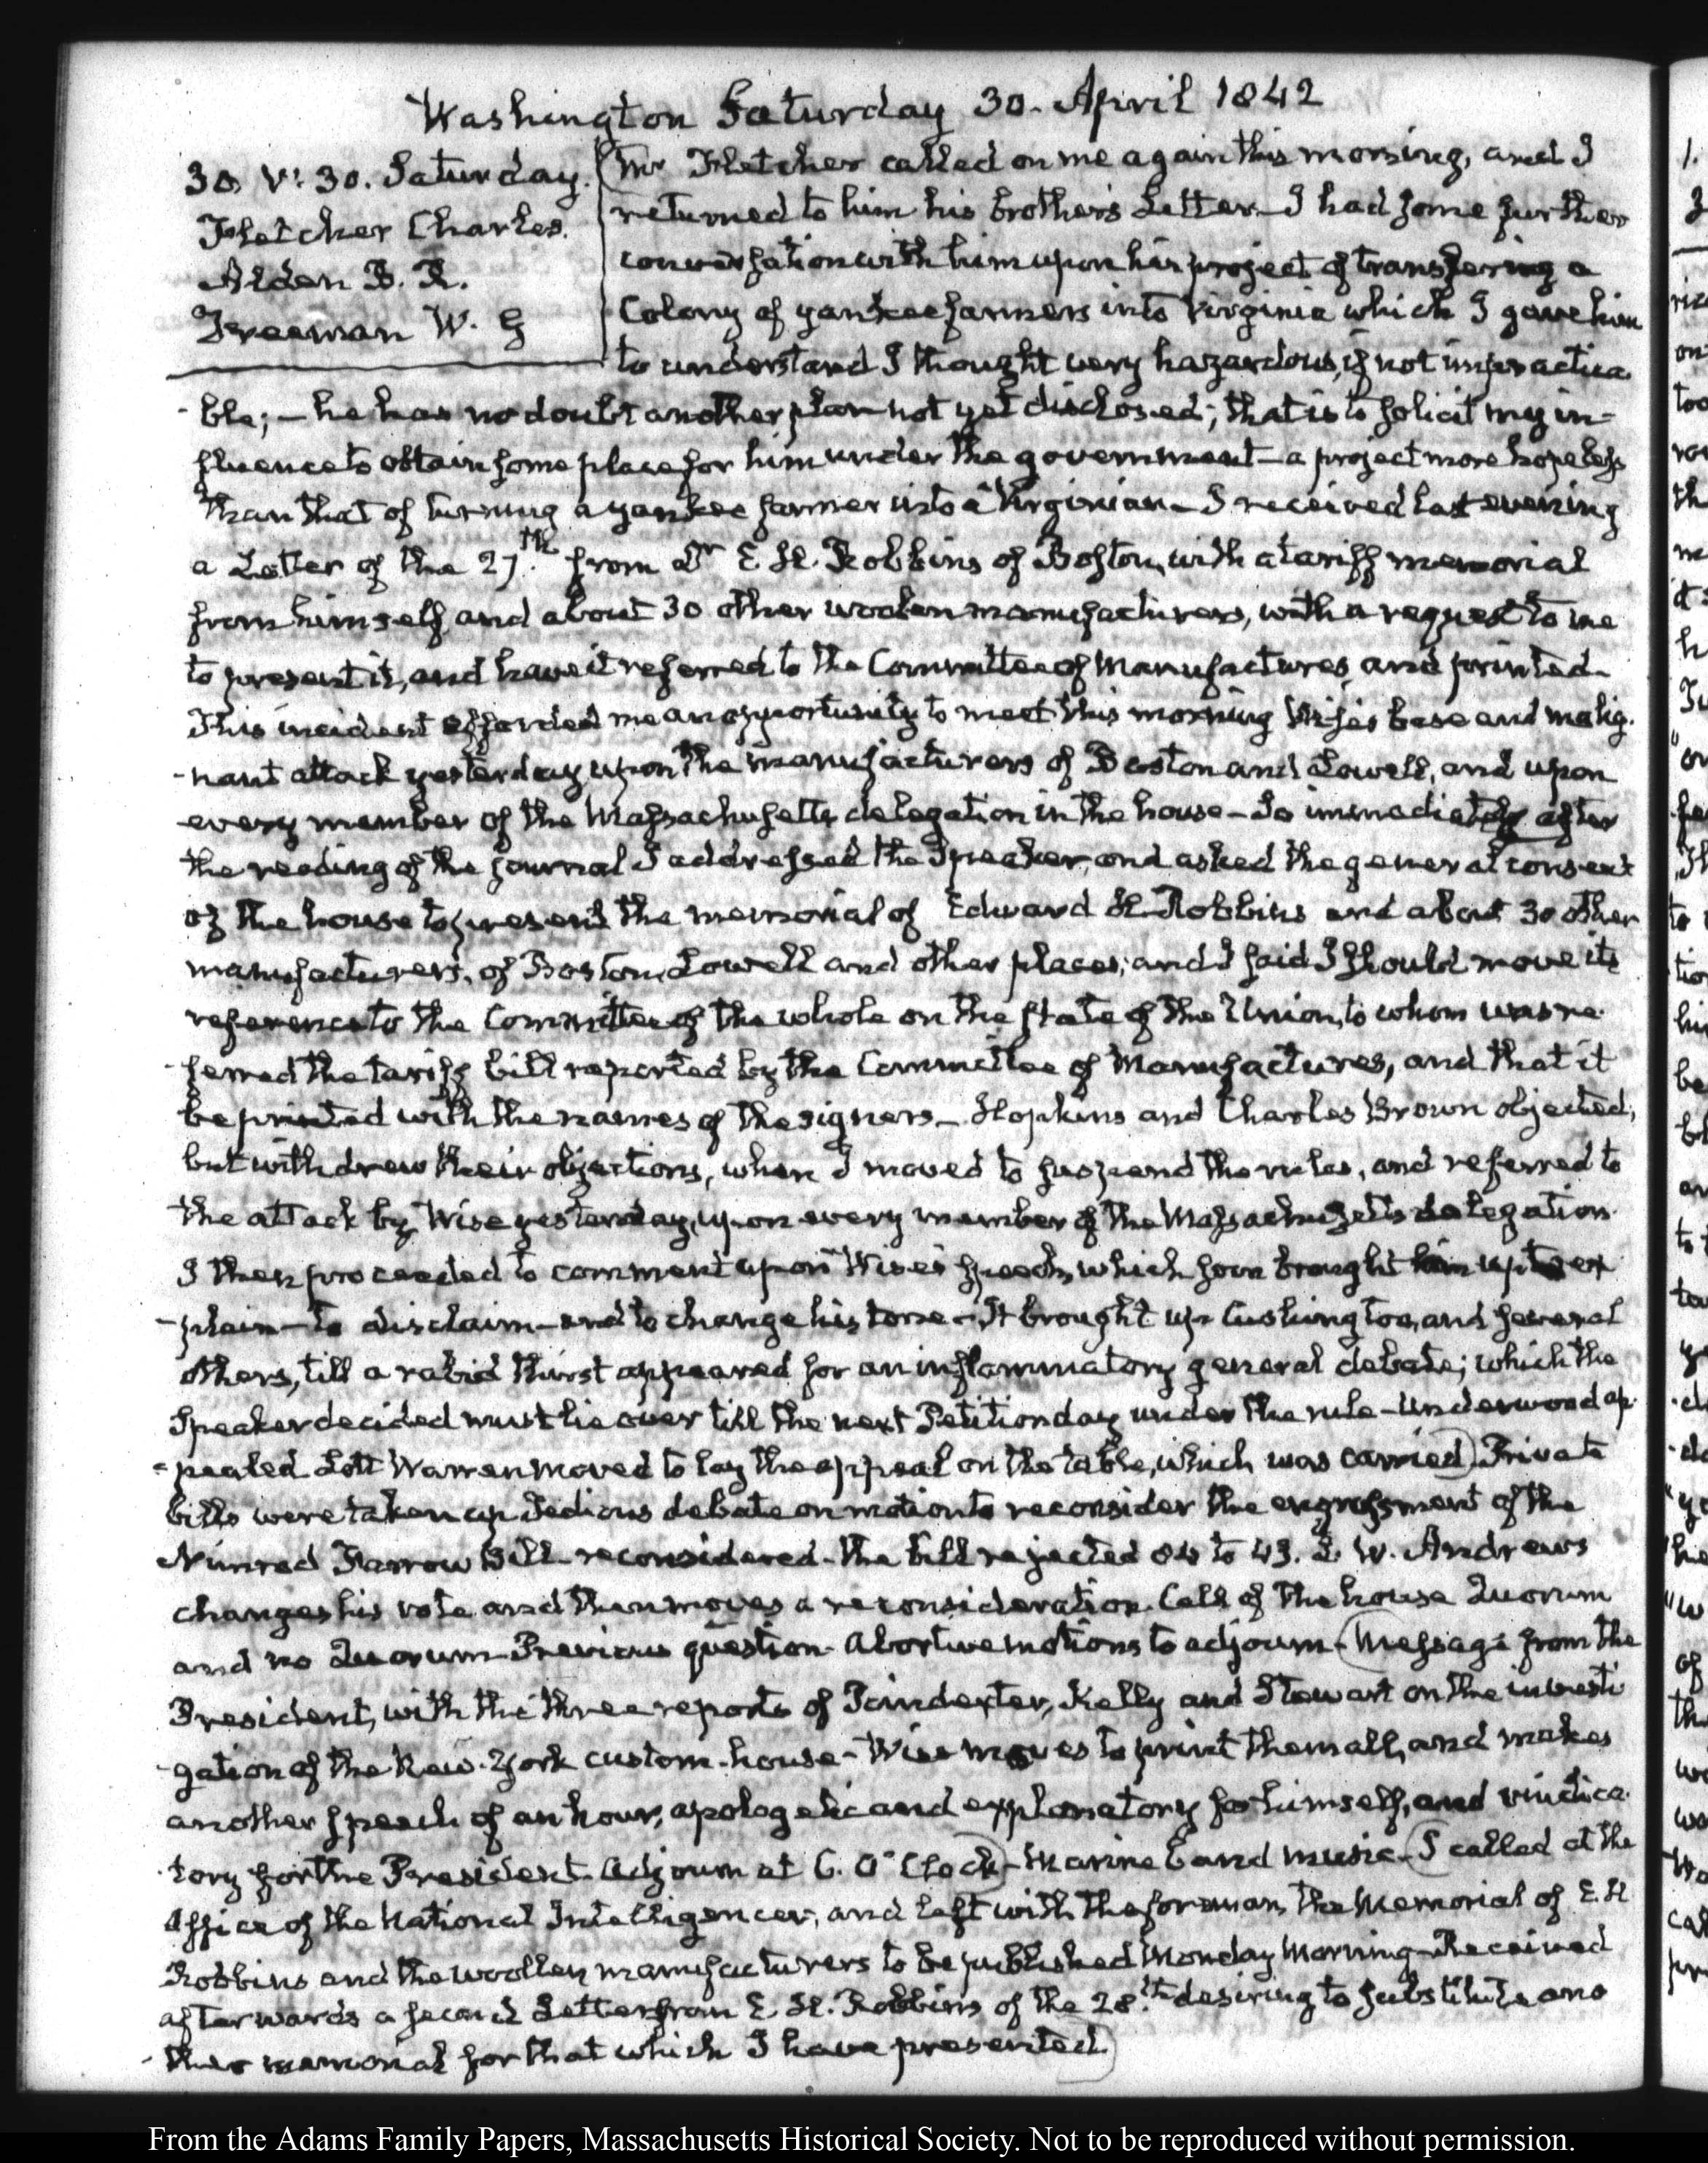 Washington Saturday 30. April 1842
30. V: 30. Saturday.
Fletcher Charles.
Alden B. R.
Freeman W. G
Mr Fletcher called on me again this morning, and I
returned to him his brother's Letter — I had some further
conversation with him upon his project of transferring a
Colony of yankee farmers into Virginia which I gave him
to understand I thought very hazardous, if not impractica
-ble; — he has no doubt another plan not yet disclosed; that is to solicit my in-
fluence to obtain some place for him under the government — a project more hopeless
than that of turning a yankee farmer into a Virginian — I received last evening
a Letter of the 27.th from Dr E. H. Robbins of Boston, with a tariff memorial
from himself and about 30 other woolen manufacturers, with a request to me
to present it, and have it referred to the Committee of Manufactures, and printed.
This incident afforded me an opportunity to meet this morning Wise's base and malig-
-nant attack yesterday upon the manufacturers of Boston and Lowell, and upon
every member of the Massachusetts delegation in the house — So immediately after
the reading of the journal I addressed the Speaker, and asked the general consent
of the house to present the memorial of Edward H. Robbins and about 30 other
manufacturers, of Boston, Lowell and other places; and I said I should move its
reference to the Committee of the whole on the state of the Union, to whom was re-
-ferred the tariff bill reported by the Committee of Manufactures, and that it
be printed with the names of the signers — Hopkins and Charles Brown objected,
but withdrew their objections, when I moved to suspend the rules, and referred to
the attack by Wise yesterday, upon every member of the Massachusetts delegation
I then proceeded to comment upon Wise's speech, which soon brought him up to ex
-plain — to disclaim — and to change his tone — It brought up Cushing too, and several
others, till a rabid thirst appeared for an inflammatory general debate; which the
Speaker decided must lie over till the next Petition day under the rule — Underwood ap-
-pealed Lott Warren moved to lay the appeal on the table, which was carried) Private
bills were taken up Tedious debate on motion to reconsider the engrossment of the
Nimrod Farrow Bill — reconsidered — the bill rejected 84 to 43. L. W. Andrews
changes his vote and then moves a reconsideration. Call of the house Quorum
and no Quorum — Previous question — Abortive motions to adjourn — (Message from the
President, with the three reports of Poindexter, Kelly and Stewart on the investi
-gation of the New-York custom-house — Wise moves to print them all, and makes
another speech of an hour, apologetic and explanatory for himself, and vindica
-tory for the President. Adjourn at 6. O'Clock) — Marine band music — (I called at the
Office of the National Intelligencer, and left with the foreman, the Memorial of E. H
Robbins and the woollen manufacturers to be published Monday Morning — Received
afterwards a second Letter from E. H. Robbins of the 28.th desiring to substitute ano
-ther memorial for that which I have presented.)
From the Adams Family Papers, Massachusetts Historical Society. Not to be reproduced without permission.